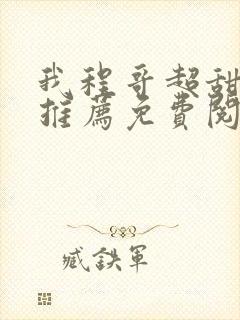 我程哥超甜
推薦免費閱
臧鉄軍